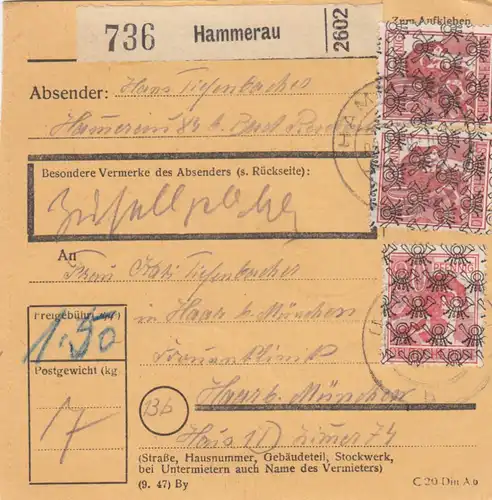 736 Hammerau 2602
Zum Aufkleben
Absender: Hans Tiefenbacher
Hammerau 89 b. Bad
Besondere Vermerke des Absenders (s. Rückseite):
An
Frau Kati Tiefenbacher
in Haar b. München
Frauenklinik
Haar b. München
Haus II Zimer 74
Freigebühr
1.50
Postgewicht (kg
7
13b
(Straße, Hausnummer, Gebäudeteil, Stockwerk,
bei Untermietern auch Name des Vermieters)
(9. 47) By
C 29 Din A6